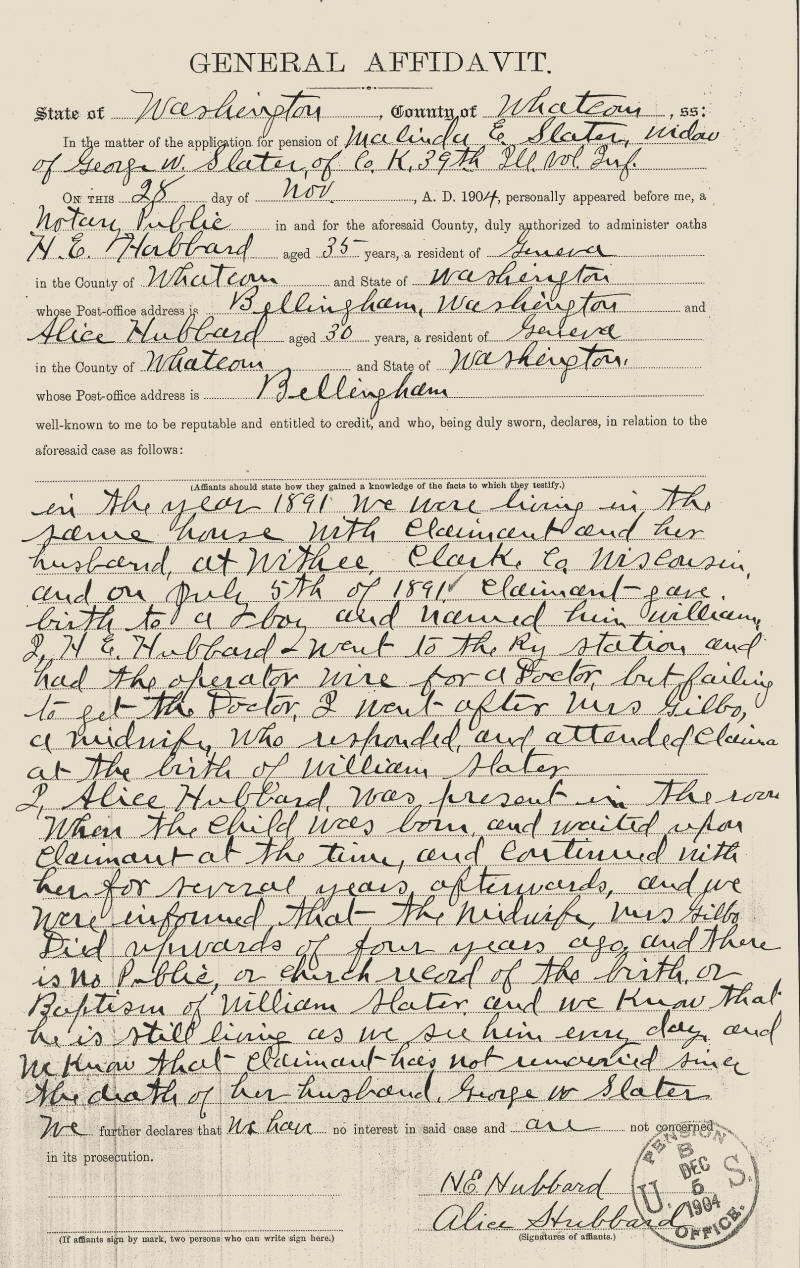 GENERAL AFFIDAVIT.
State of Washington, County of Whatcom, ss:
In the matter of the application for pension of Malinda E. Slater, widow
of George W. Slater, of Co. K, 39th Ill. Vol. Inf.
ON THIS 28 day of Nov, A. D. 1904, personally appeared before me, a
Notary Public in and for the aforesaid County, duly authorized to administer oaths
H. E. Hubbard aged 35 years, a resident of Geneva
in the County of Whatcom and State of Washington
whose Post-office address is Bellingham, Washington and
Alice Hubbard aged 30 years, a resident of Geneva
in the County of Whatcom and State of Washington.
whose Post-office address is Bellingham
well-known to me to be reputable and entitled to credit, and who, being duly sworn, declares, in relation to the
aforesaid case as follows:
(Affiants should state how they gained a knowledge of the facts to which they testify.)
in the year 1891 we were living in the
same house with Claimant and her
husband, at Withee, Clark, Co, Wisconsin,
and on July 5th of 1891 Claimant gave
birth to a boy and named him William,
I, H E. Hubbard went to the Ry station and
had the operator wire for a Doctor, but failing
to get the Doctor, I went after Mrs Gilbo,
a midwife, who responded, and attended Claima
at the birth of William Slater
I, Alice Hubbard, was present in the room
When the Child was born, and waited upon
Claimant at the time, and continued with
her for several years, afterwards, and we
were informed that the midwife, Mrs Gilbo
Died upwards of four years ago, and there
is no Public, or church record of the birth, or
Baptism of William Slater, and we know that
he is still living as we see him every day, and
we know that Claimant has not remarried since
the death of her husband, George W Slater
We further declares that we have no interest in said case and are not concerned
in its prosecution.
H E. Hubbard
Alice Hubbard
(If affiants sign by mark, two persons who can write sign here.)
(Signatures of affiants.)
PENSION
B
DEC
5
1904
U. S.
OFFICE.